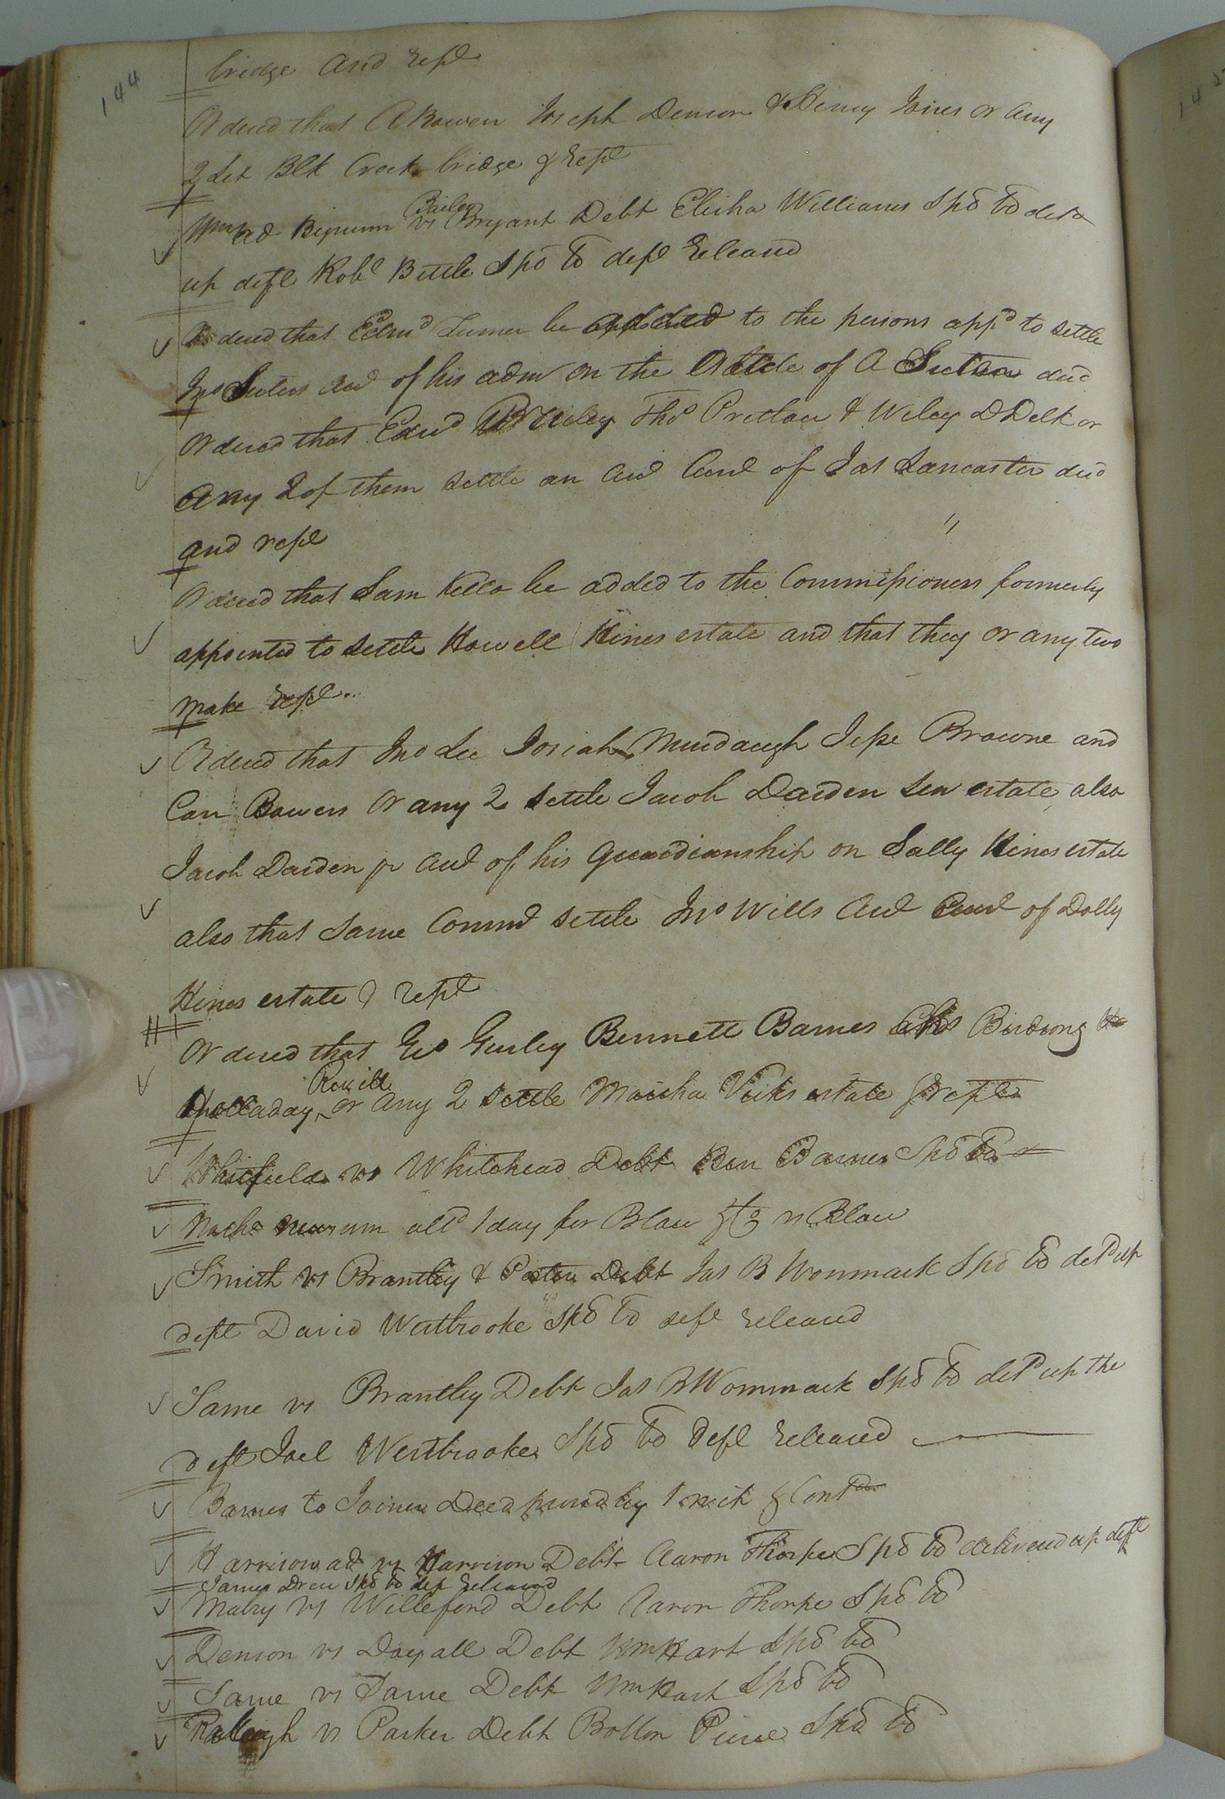 144
bridge and rept
Ordered that A Bowen Joseph Denson & Henry Joiner or any
2 let Blk Creek bridge & rept
Wm ad Bynum vs Bailey Bryant Debt Elisha Williams Spd bd deld
up deft Robt Bittle Spd bd deft released
Ordered that Edmd Turner be added to the persons appd to settle
Jno act of his adm on the estate of A decd
Ordered that Edwd Thos Pretlow & Wiley D Delk or
any 2 of them settle an act Curt of Jas Lancaster decd
and rept "
Ordered that Sam Kello be added to the Commissioners formerly
appointed to settle Howell Hines estate and that they or any two
make rept
Ordered that Jno Lee Josiah Murdaugh Jesse Browne and
Carr Bowers or any 2 settle Jacob Darden Sen estate also
Jacob Darden jr act of his guardianship on Sally Hines estate
also that same Comrs settle Jno Wills act Curt of Dolly
Hines estate & rept
Ordered that Geo Gurley Bennett Barnes Birdsong
Holladay, or any 2 settle Vicks estate & rept
Whitfield vs Whitehead Debt Ben Barnes Spd bd
alld 1 day for Blow vs Blow
Smith vs Brantley & Debt Jas B Wommack Spd bd deld up
deft David Westbrooke Spd bd deft released
Same vs Brantley Debt Jas B Wommack Spd bd deld up the
deft Joel Westbrooke Spd bd deft released
Barnes to Joiner Deed proved by 1 & Contd
Harrison ad vs Harrison Debt Aaron Thorpe Spd bd delivered up deft
James Drew Spd bd deft released
Mabry vs Williford Debt Aaron Thorpe Spd bd
Denson vs Debt Wm Hart Spd bd
Same vs Same Debt Wm Hart Spd bd
vs Parker Debt Spd bd